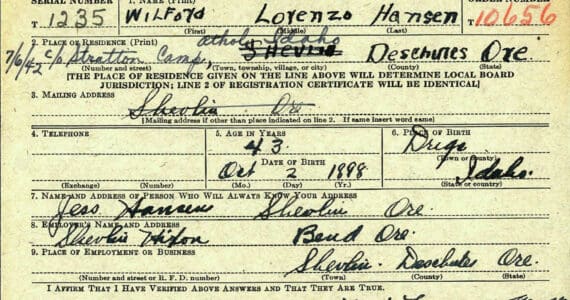 SERIAL NUMBER 1. NAME (Print) ORDER NUMBER
T 1235 Wilford Lorenzo Hansen 10656
(First) (Middle) (Last)
athol, Idaho
2. PLACE OF RESIDENCE (Print)
7/6/42 c/o Stratton Camp, Shevlin Deschutes Ore.
(Number and street) (Town, township, village, or city) (County) (State)
[THE PLACE OF RESIDENCE GIVEN ON THE LINE ABOVE WILL DETERMINE LOCAL BOARD
JURISDICTION; LINE 2 OF REGISTRATION CERTIFICATE WILL BE IDENTICAL]
3. MAILING ADDRESS
Shevlin Ore
[Mailing address if other than place indicated on line 2. If same insert word same]
4. TELEPHONE 5. AGE IN YEARS 6. PLACE OF BIRTH
43 Drigs
DATE OF BIRTH (Town or county)
Oct 2 1898 Idaho.
(Exchange) (Number) (Mo.) (Day) (Yr.) (State or country)
7. NAME AND ADDRESS OF PERSON WHO WILL ALWAYS KNOW YOUR ADDRESS
Jess Hansen Shevlin Ore.
8. EMPLOYER'S NAME AND ADDRESS
Shevlin Hixon Bend Ore.
9. PLACE OF EMPLOYMENT OR BUSINESS
Shevlin. Deschutes Ore.
(Number and street or R. F. D. number) (Town) (County) (State)
I AFFIRM THAT I HAVE VERIFIED ABOVE ANSWERS AND THAT THEY ARE TRUE.